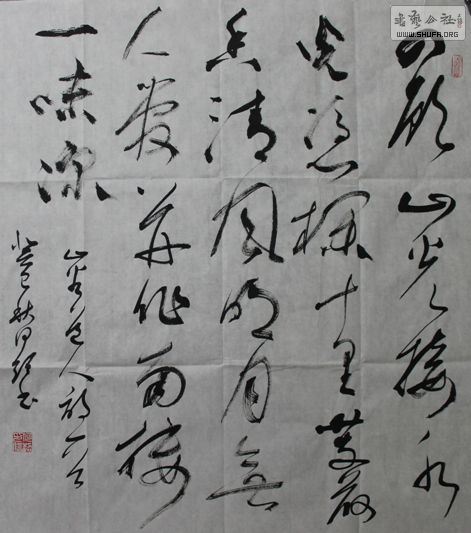 书艺公社
WWW.SHUFA.ORG
四顾山光接水
光凭栏十里芰荷
香清风明月无
人管并作南楼
一味凉
山谷道人诗一首
癸巳秋月书